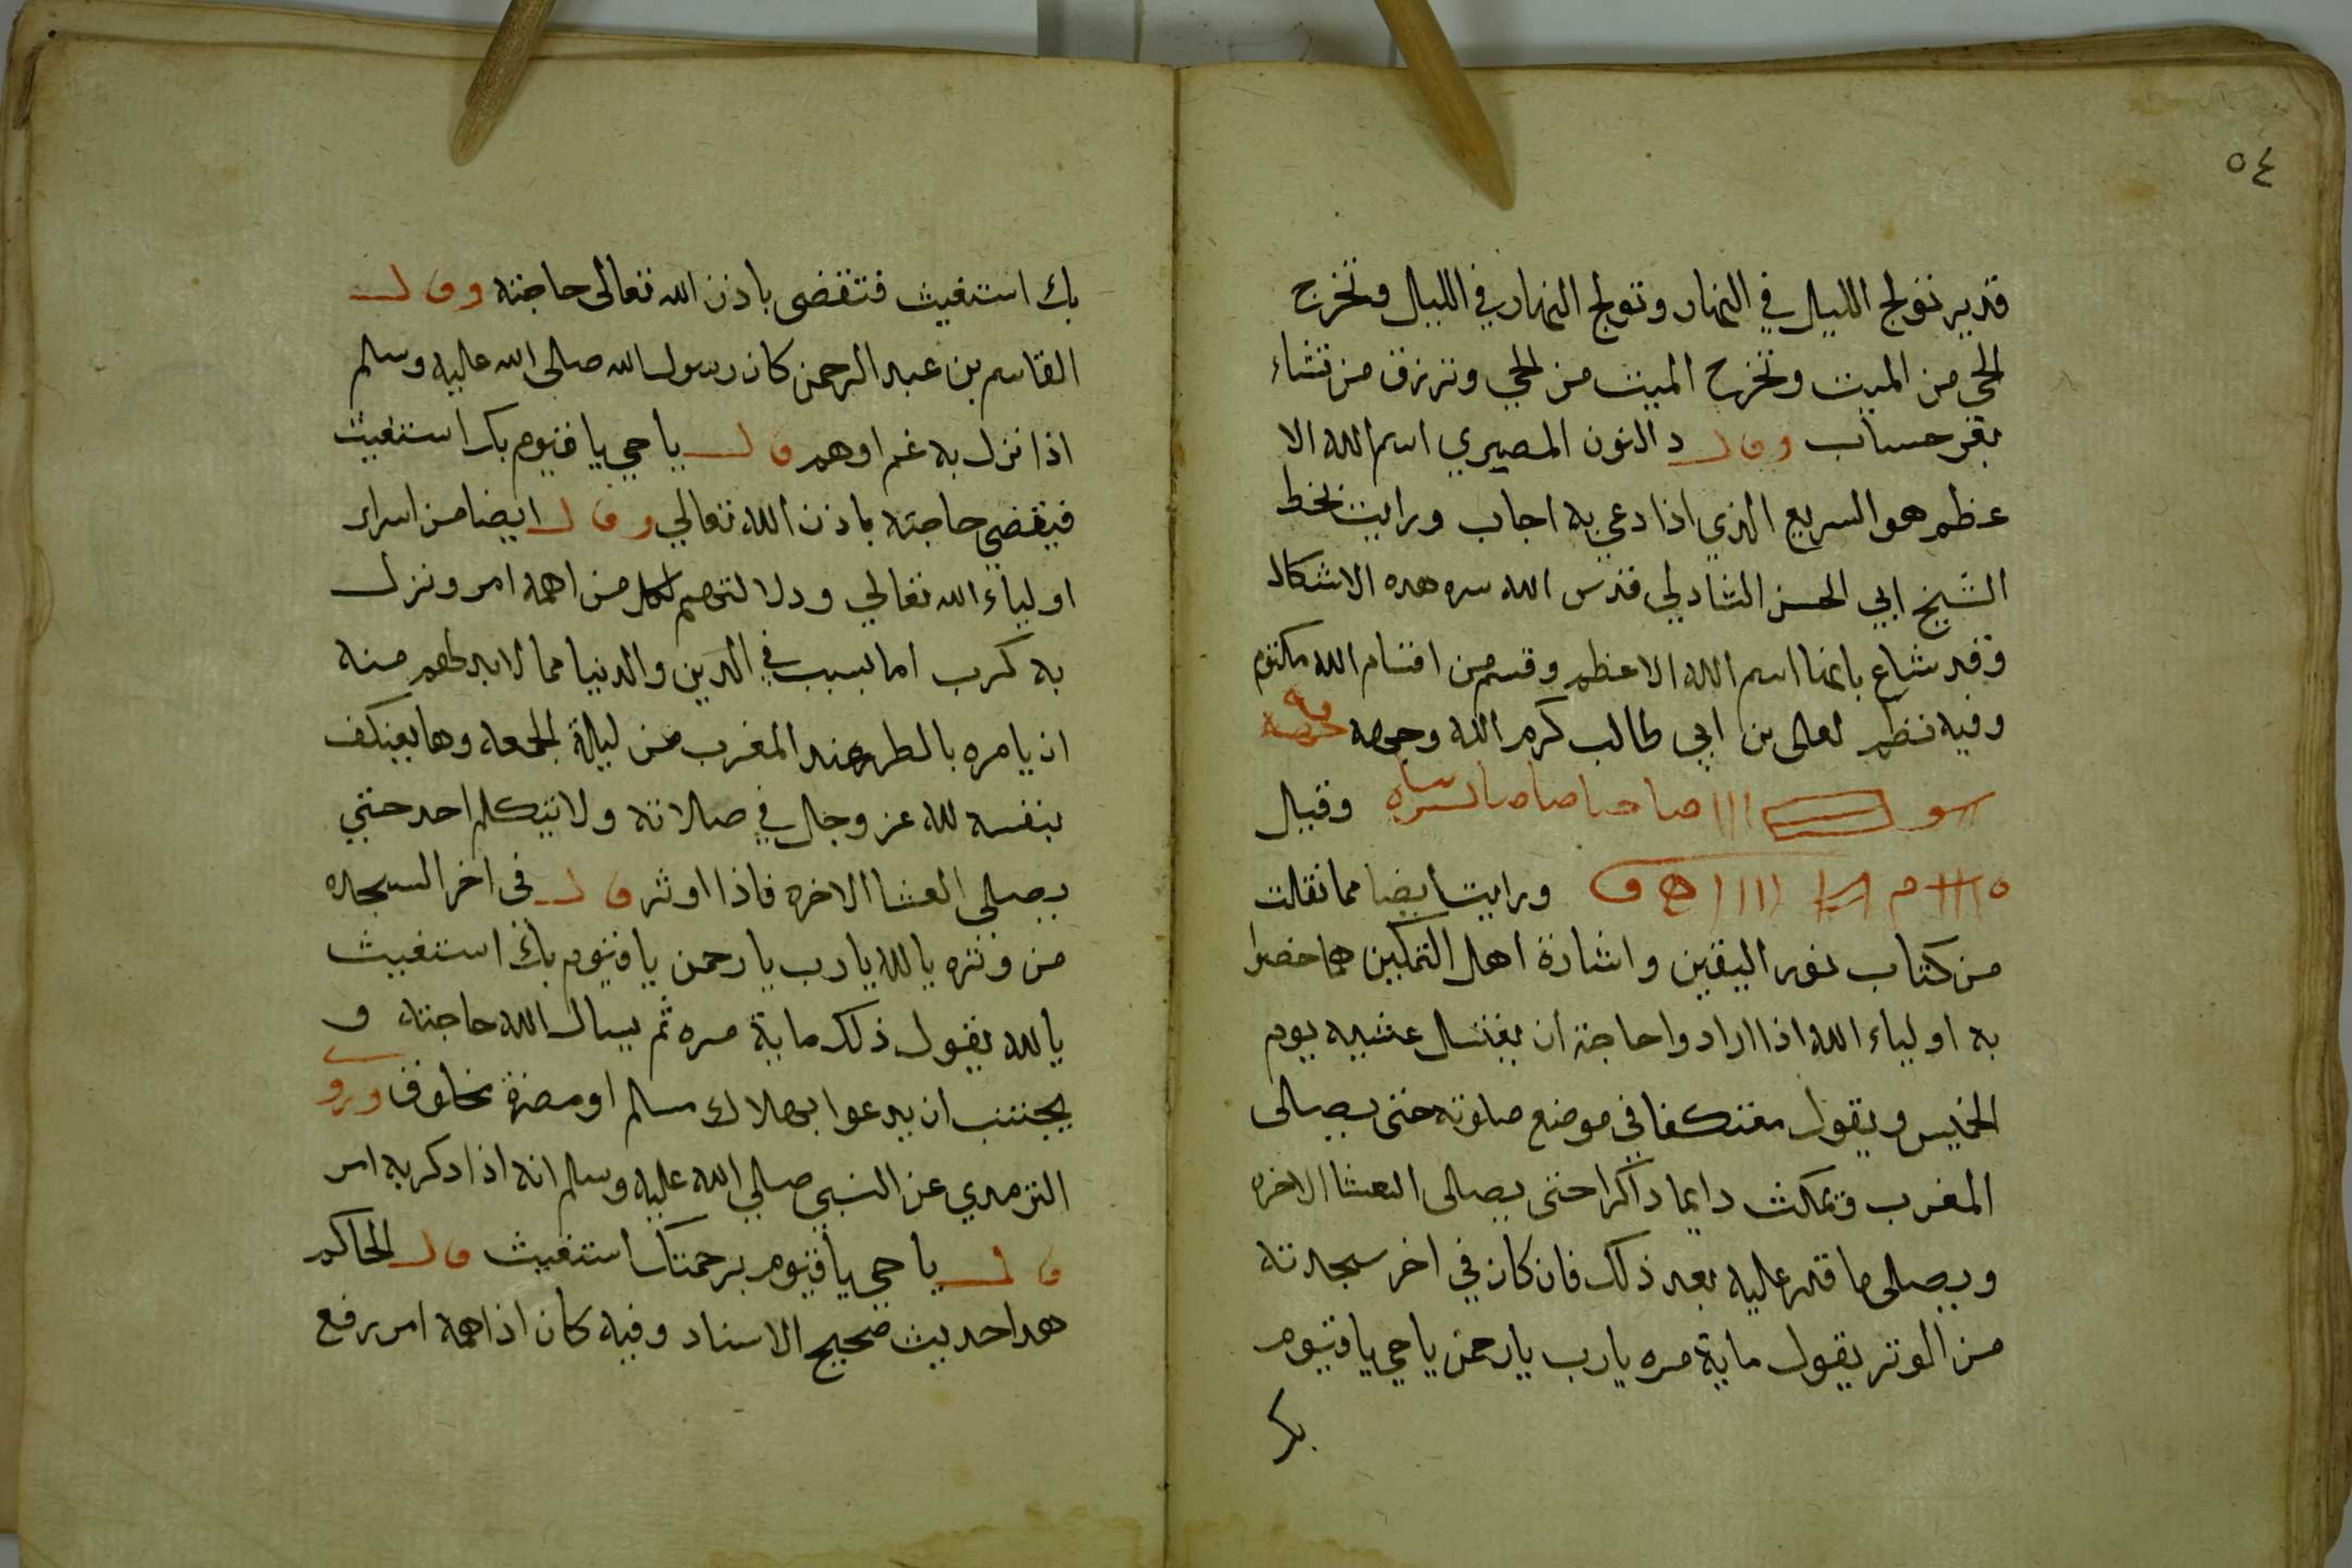 ٥٤
قدير تولج الليل في النهار وتولج النهار في الليل وتخرج
الحي من الميت وتخرج الميت من الحي وترزق من تشاء
بغير حساب وقال دالنون المصيري اسم الله الا
عظم هو السريع الذي اذا دعي به اجاب ورايت بخط
الشيخ ابي الحسن الشادلي قدس الله سره هده الاشكال
وقد شاع بانها اسم الله الاعظم وقسم من اقسام الله مكتوم
وفيه نظم لعلى بن ابي طالب كرم الله وجهه
وقيل
ورايت ايضا مما نقلت
من كتاب نور اليقين واشارة اهل التمكين مما خصوا
به اولياء الله اذا ارادوا حاجة ان يغتسل عشيه يوم
الخميس ويقول معتكفا في موضع صلوته حتى يصلى
المغرب وتمكث دايما داكرا حتى يصلى العشا الاخره
ويصلى ما قدر عليه بعد ذلك فان كان في اخر سجدته
من الوتر يقول ماية مره يارب يارحمن ياحي ياقيوم
بك
بك استغيث فتقضى باذن الله تعالى حاجته وقال
القاسم بن عبد الرحمن كان رسول الله صلى الله عليه وسلم
اذا نزل به غم اوهم قال ياحي ياقيوم بك استغيث
فيقضي حاجته باذن الله تعالي وقال ايضا من اسرار
اولياء الله تعالي ودلالتهم لكل من اهمه امر ونزل
به كرب اما بسبب في الدين والدنيا مما لابد لهم منه
ان يامره بالطهر عند المغرب من ليلة الجمعه وها يعنكف
بنفسه لله عز وجل في صلاته ولا تيكلم احد حتي
يصلى العشا الاخره فاذا اوتر قال في اخر السجده
من وتره يالله يارب يارحمن ياقيوم بك استغيث
يالله يقول ذلك ماية مره ثم يسال الله حاجته و
يجتنب ان يدعوا بهلاك مسلم او مضرة مخلوق وروي
الترمدي عن النبي صلي الله عليه وسلم انه اذا دكر به امر
قال ياحي ياقيوم برحمتك استغيث قال الحاكم
هدا حديث صحيح الاسناد وفيه كان اذا اهمه امر رفع